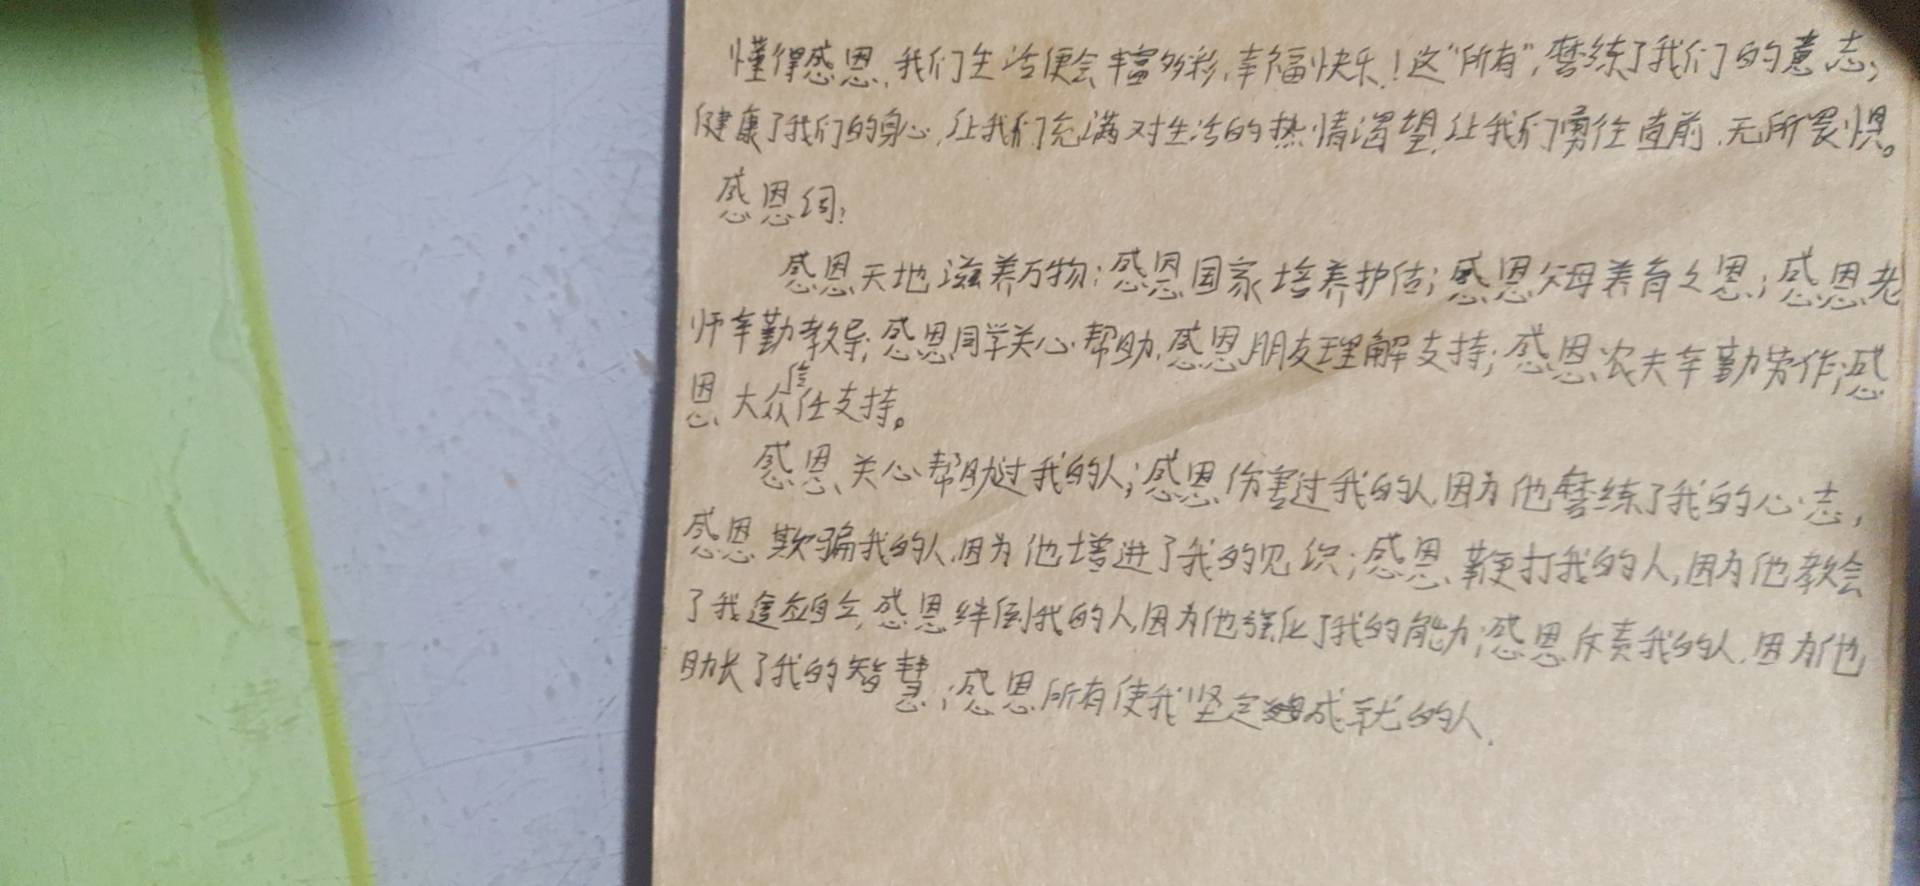 懂得感恩,我们生活便会丰富多彩,幸福快乐!这“所有”,磨练了我们的意志,
健康了我们的身心,让我们充满对生活的热情渴望,让我们勇往直前,无所畏惧。
感恩词:
感恩天地滋养万物;感恩国家培养护佑;感恩父母养育之恩;感恩老
师辛勤教导;感恩同学关心帮助,感恩朋友理解支持;感恩农夫辛勤劳作;感
恩大众信任支持。
感恩关心帮助过我的人;感恩伤害过我的人,因为他磨练了我的心志,
感恩欺骗我的人,因为他增进了我的见识;感恩鞭打我的人,因为他教会
了我自立,感恩绊倒我的人,因为他强化了我的能力;感恩斥责我的人,因为他
助长了我的智慧;感恩所有使我坚定成就的人.